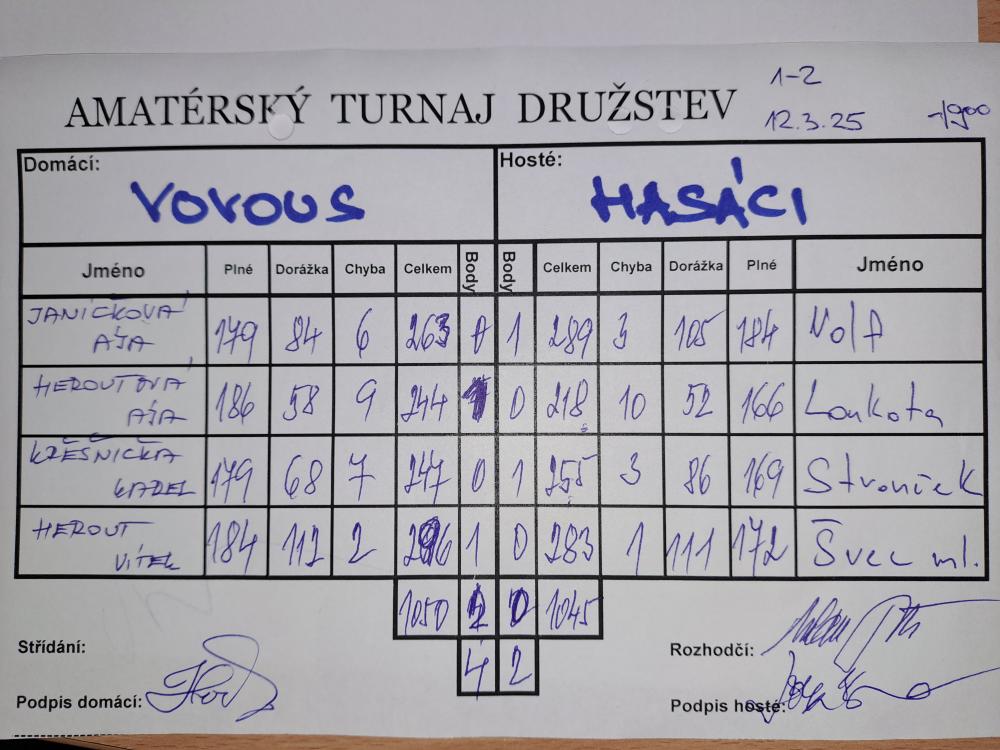 1-2
AMATÉRSKÝ TURNAJ DRUŽSTEV
12.3.25
-/900
Domácí: VOVOUS Hosté: HASÁCI
Jméno Plné Dorážka Chyba Celkem Body Body Celkem Chyba Dorážka Plné Jméno
JANÍČKOVÁ AJA 179 84 6 263 0 1 289 3 105 184 Volf
HEROUTOVÁ AJA 186 58 9 244 1 0 218 10 52 166 Loukota
KŘEŠNIČKA KADEL 179 68 7 247 0 1 255 3 86 169 Strouček
HEROUT VÍTEK 184 112 2 296 1 0 283 1 111 172 Švec ml.
1050 2 0 1045
4 2
Střídání:
Rozhodčí:
Podpis domácí:
Podpis hosté: